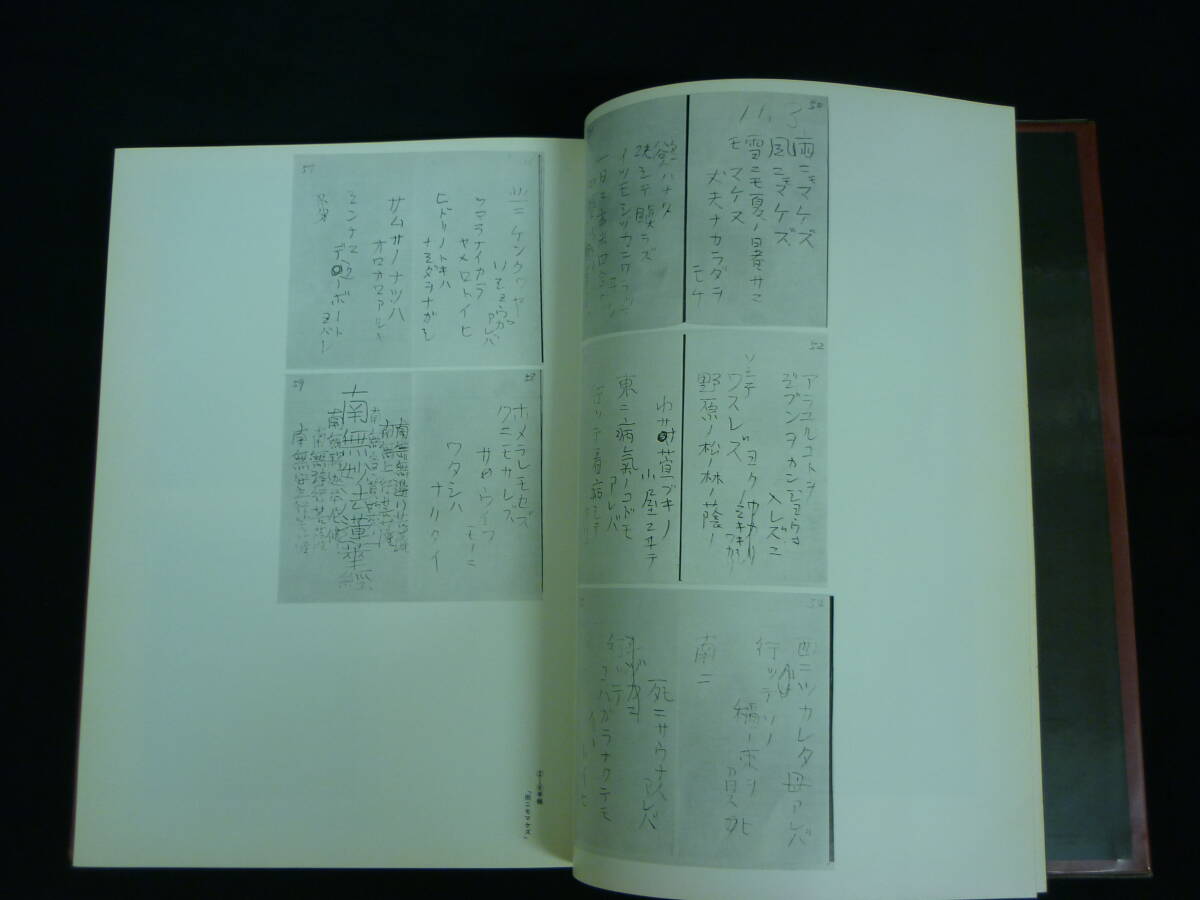 50
雨ニモマケズ
風ニモマケズ
雪ニモ夏ノ暑サニ
モマケヌ
丈夫ナカラダヲ
モチ
慾ハナク
決シテ瞋ラズ
イツモシヅカニワラッテ
52
アラユルコトヲ
ジブンヲカンジョウニ
入レズニ
ヨク
ワカリ
ソシテ
ワスレズ
野原ノ松ノ林ノ蔭ノ
小サナ萓ブキノ
小屋ニヰテ
東ニ病氣ノコドモ
アレバ
行ッテ看病シテ
54
西ニツカレタ母アレバ
行ッテソノ
稲ノ束ヲ
負ヒ
南ニ
死ニサウナ人アレバ
行ッテ
コハガラナクテモ
イヽ
北ニケンクヮヤ
ソショウガ
アレバ
ツマラナイカラ
ヤメロトイヒ
ヒドリノトキハ
ナミダヲナガシ
57
サムサノナツハ
オロオロアルキ
ミンナニ
デクノボートヨバレ
58
ホメラレモセズ
クニモサレズ
サウイフ
モノニ
ワタシハ
ナリタイ
59
南無無邊行菩薩
南無上行菩薩
南無多寶如來
南無妙法蓮華經
南無釈迦牟尼佛
南無浄行菩薩
南無安立行菩薩
「雨ニモマケズ」